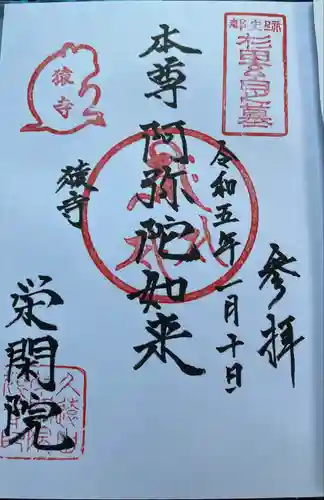 参拝
令和五年一月十日
本尊 阿弥陀如来
猿寺
栄閑院
都史跡
杉田玄白墓
猿寺